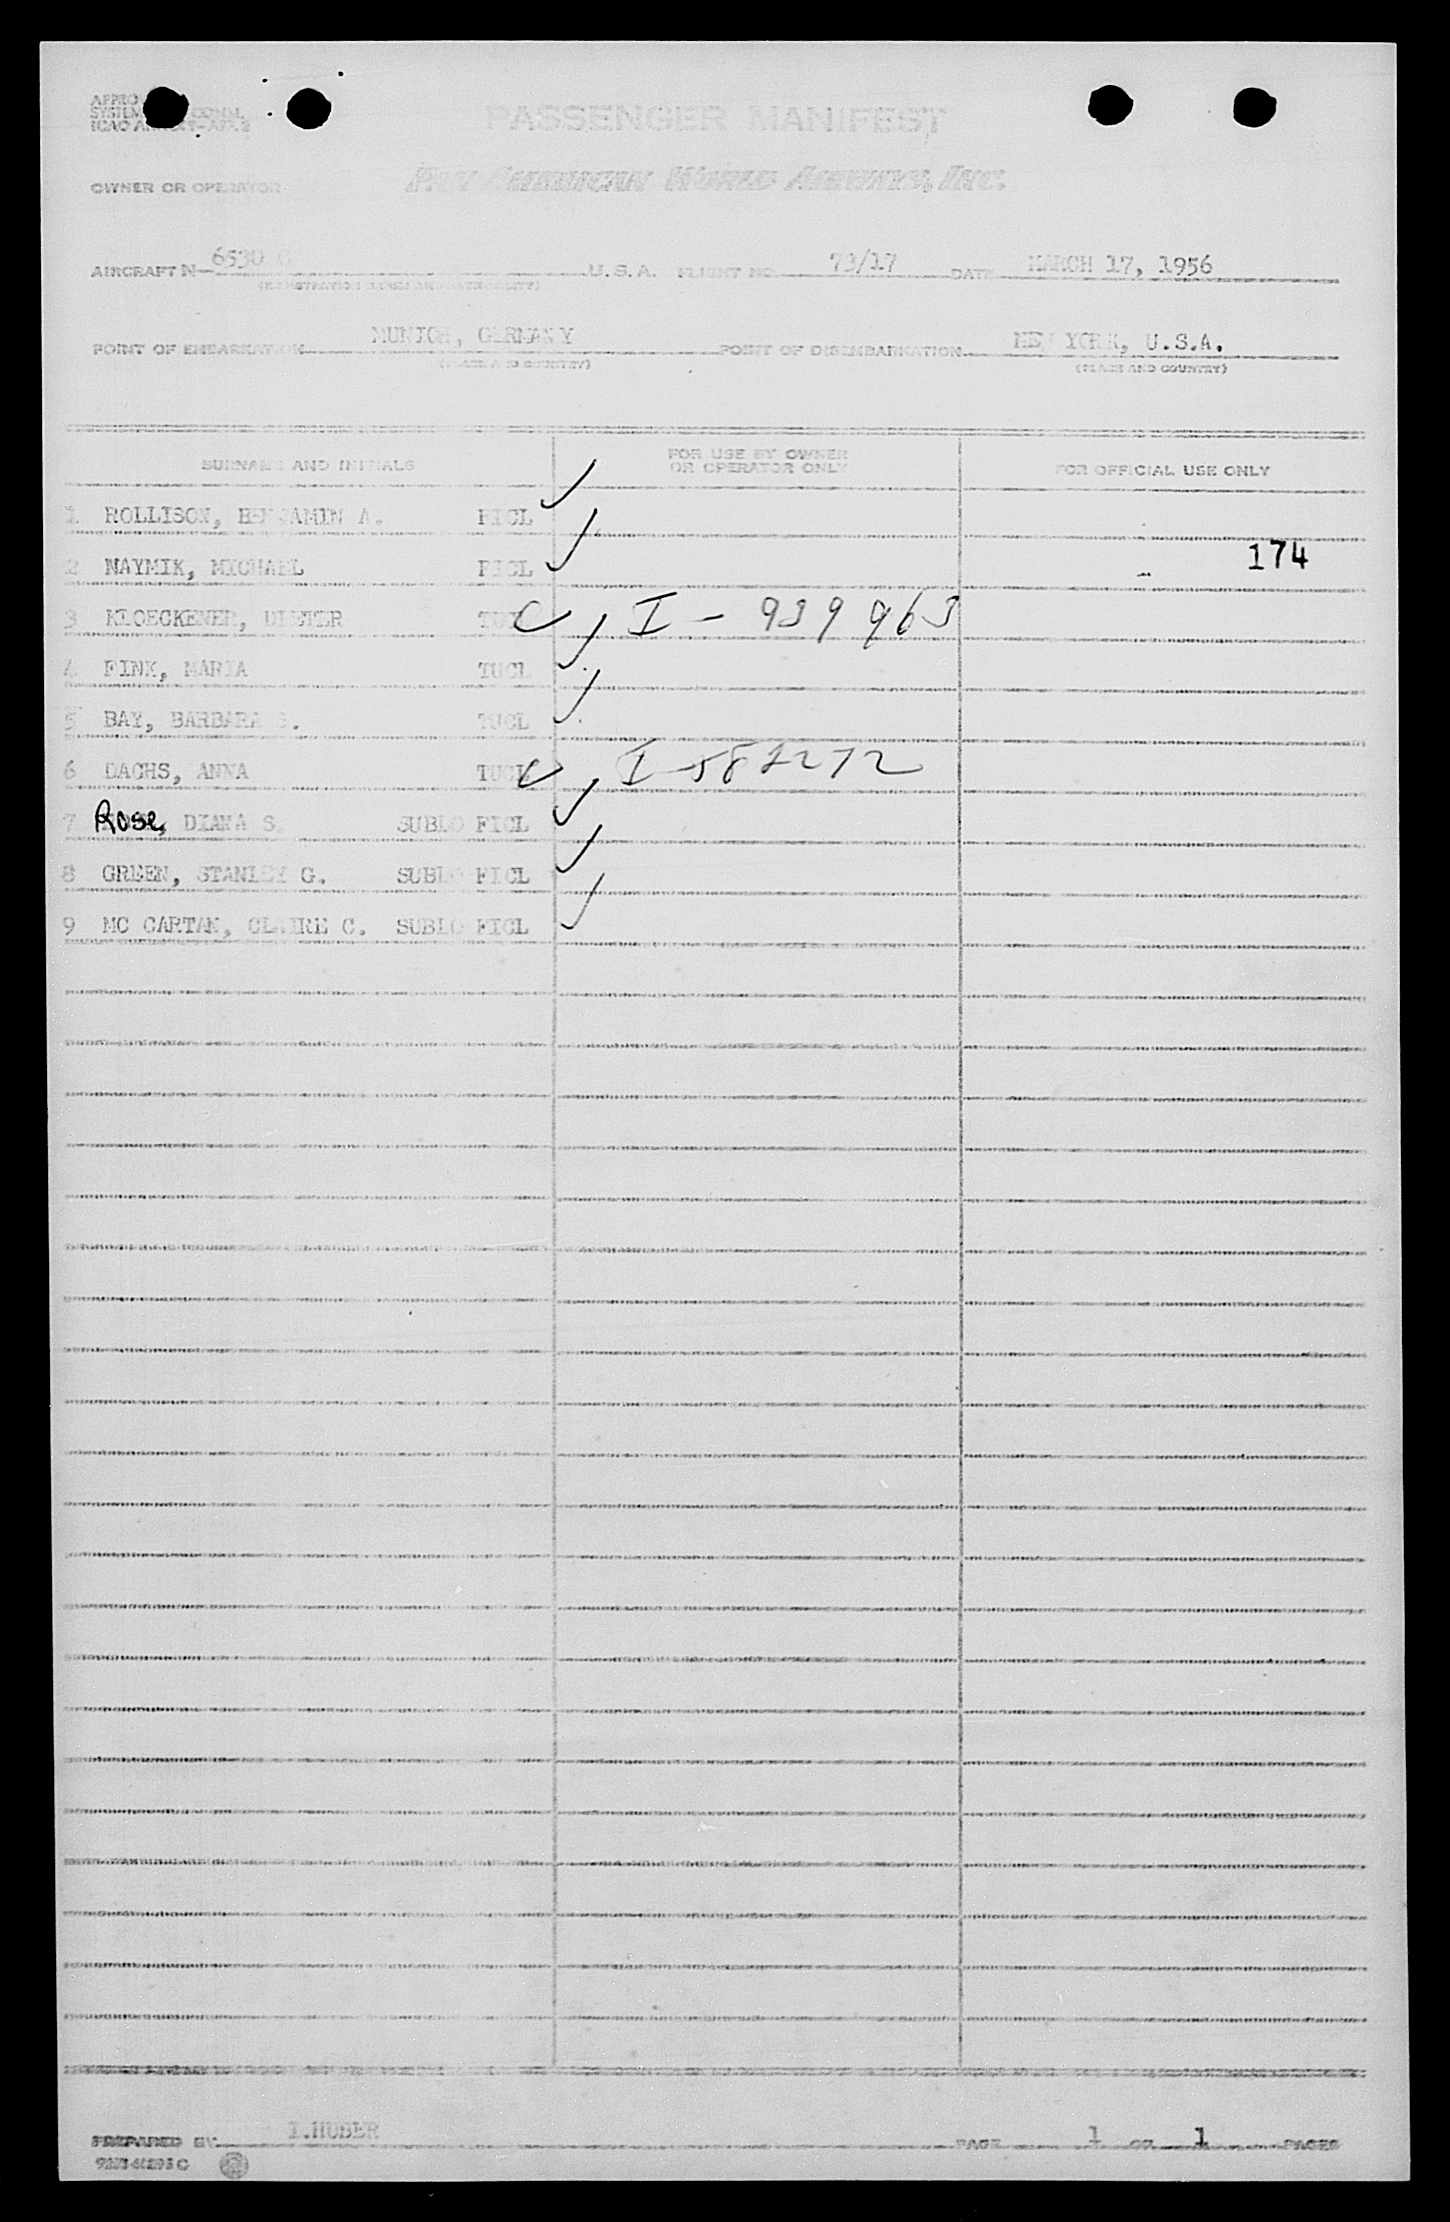 PASSENGER MANIFEST
OWNER OR OPERATOR PAN AMERICAN WORLD AIRWAYS, INC.
AIRCRAFT N- U.S.A. FLIGHT NO. 73/17 DATE MARCH 17, 1956
POINT OF EMBARKATION MUNICH, GERMANY POINT OF DISEMBARKATION NEW YORK, U.S.A.
(PLACE AND COUNTRY) (PLACE AND COUNTRY)
SURNAME AND INITIALS FOR USE BY OWNER OR OPERATOR ONLY FOR OFFICIAL USE ONLY
1 ROLLISON, BENJAMIN A. FICL ✓
174
2 NAYMIK, MICHAEL FICL ✓
3 KLOECKENER, DIETER TUCL C I - 939963
4 FINK, MARIA TUCL ✓
5 BAY, BARBARA TUCL ✓
6 DACHS, ANNA TUCL I-582272
7 Rose, DIANA S. SUBLO FICL ✓
8 GREEN, STANLEY G. SUBLO FICL ✓
9 MC CARTAN, CLAIRE C. SUBLO FICL ✓
PREPARED BY I.HUBER PAGE 1 OF 1 PAGES